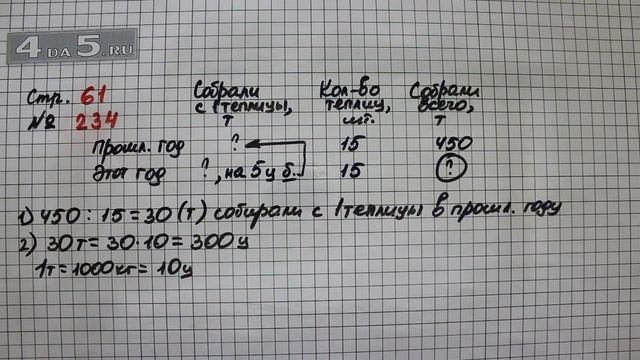 4DA5.RU
Стр. 61
№ 234
Собрали с 1 теплицы, т
Кол-во теплиц, шт.
Собрали всего, т
Прошл. год ? 15 450
Этот год ?, на 5 ц б. 15 ?
1) 450 : 15 = 30 (т) собирали с 1 теплицы в прошл. году
2) 30т = 30·10 = 300ц
1т = 1000кг = 10ц